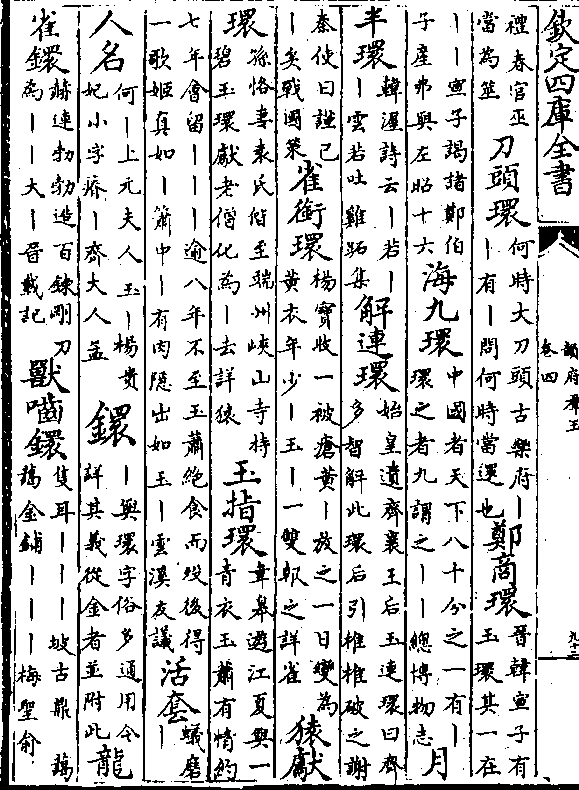 欽定四庫全書
禮春官巫
當為筮
刀頭環
何時大刀頭古樂府｜
｜有｜問何時當還也
鄭商環
晉韓宣子有
玉環其一在
｜｜宣子謁諸鄭伯
子産弗與左昭十六
海九環
中國者天下八十分之一有｜
環之者九謂之｜｜總博物志
月
半環
韓渥詩云｜若｜
｜雲若吐雞跖集
解連環
始皇遺齊襄王后玉連環曰齊
多智解此環后引椎椎破之謝
秦使曰謹已
｜矣戰國策
雀銜環
楊寶收一被瘡黄｜放之一日變為
黄衣年少｜玉｜一雙報之詳雀
猿獻
環
孫恪妻袁氏偕至端州峽山寺持
碧玉環獻老僧化為｜去詳猿
玉指環
韋臯遊江夏與一
青衣玉蕭有情約
七年會留｜｜｜逾八年不至玉蕭絶食而殁後得
一歌姬真如｜簫中｜有肉隱出如玉｜雲溪友議
活套
蟻磨
｜
人名
何｜上元夫人玉｜楊貴
妃小字瘠｜齊大人孟
鐶
｜與環字俗多通用今
詳其義從金者並附此
龍
雀鐶
赫連勃勃造百鍊剛刀
為｜｜大｜晉載記
獸嚙鐶
隻耳｜｜｜坡古鼎
金鋪｜｜｜梅聖俞
韻府羣玉
卷四